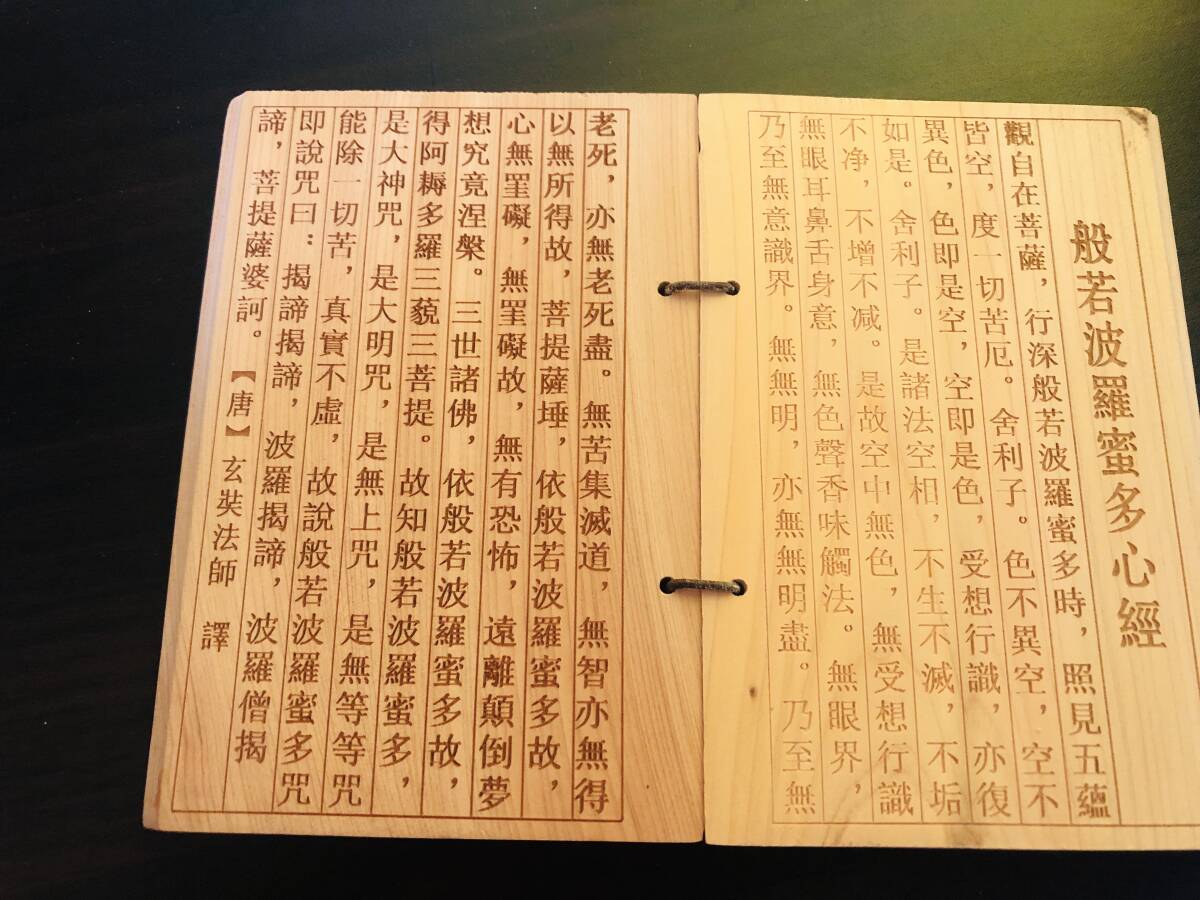 般若波羅蜜多心經
觀自在菩薩，行深般若波羅蜜多時，照見五蘊
皆空，度一切苦厄。舍利子。色不異空，空不
異色，色即是空，空即是色，受想行識，亦復
如是。舍利子。是諸法空相，不生不滅，不垢
不净，不增不减。是故空中無色，無受想行識
無眼耳鼻舌身意，無色聲香味觸法。無眼界，
乃至無意識界。無無明，亦無無明盡。乃至無
老死，亦無老死盡。無苦集滅道，無智亦無得
以無所得故，菩提薩埵，依般若波羅蜜多故，
心無罣礙，無罣礙故，無有恐怖，遠離顛倒夢
想究竟涅槃。三世諸佛，依般若波羅蜜多故，
得阿耨多羅三藐三菩提。故知般若波羅蜜多，
是大神咒，是大明咒，是無上咒，是無等等咒
能除一切苦，真實不虛，故說般若波羅蜜多咒
即說咒曰：揭諦揭諦，波羅揭諦，波羅僧揭
諦，菩提薩婆訶。【唐】玄奘法師 譯